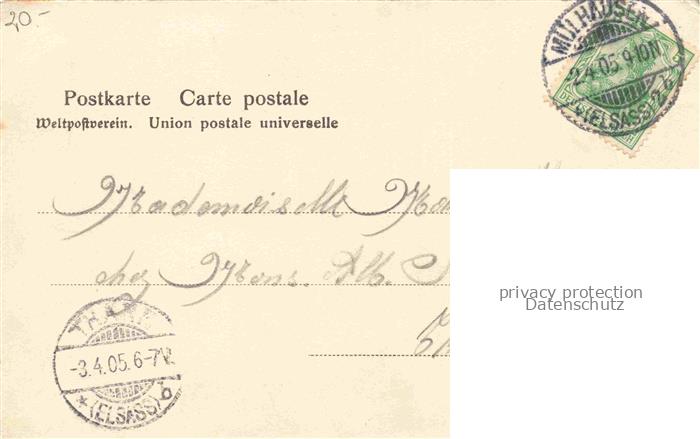 20.-
MÜLHAUSEN
2.4.05.9-10N
(ELSASS) b
Postkarte Carte postale
Weltpostverein. Union postale universelle
Mademoiselle
chez Mons. Alb.
privacy protection
Datenschutz
THANN
-3.4.05.6-7V.
* (ELSASS) b